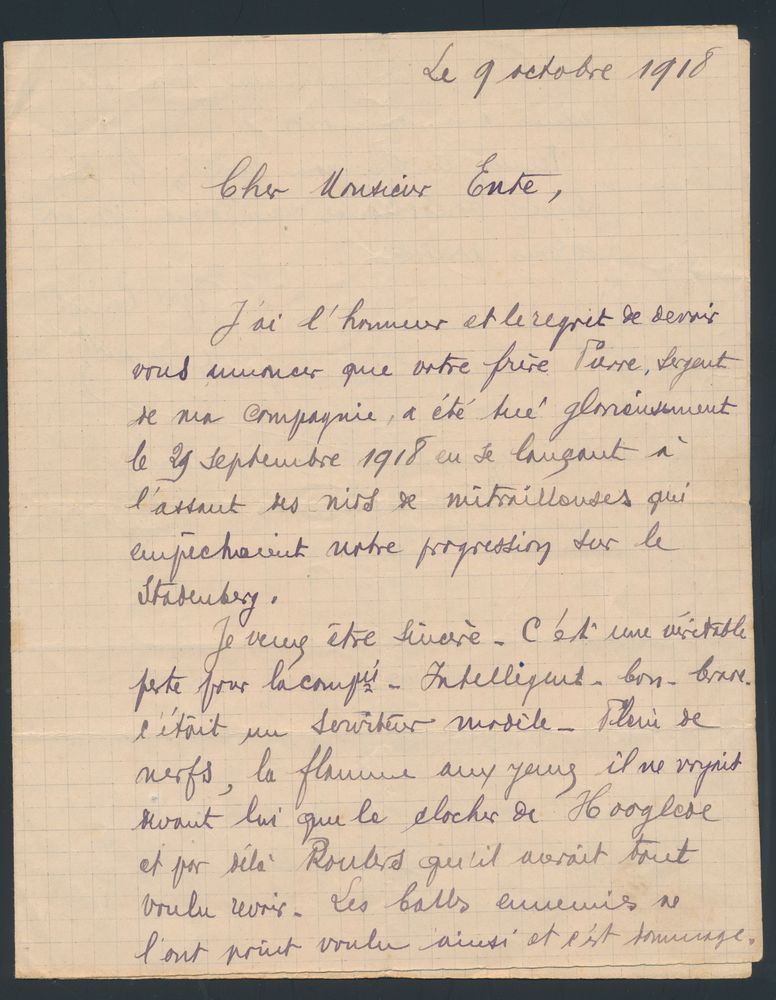 Le 9 octobre 1918
Cher Monsieur Ente,
J'ai l'honneur et le regret de devoir
vous annoncer que votre frère Pierre, sergent
de ma compagnie, a été tué glorieusement
le 29 septembre 1918 en se lançant à
l'assaut des nids de mitrailleuses qui
empêchaient notre progression sur le
Stadenberg.
Je veux être sincère - C'est une véritable
perte pour la compie - Intelligent - bon - brave -
c'était un serviteur modèle - Plein de
nerfs, la flamme aux yeux il ne voyait
devant lui que le clocher de Hooglede
et par delà Roulers qu'il aurait tant
voulu revoir - Les balles ennemies ne
l'ont point voulu ainsi et c'est dommage.